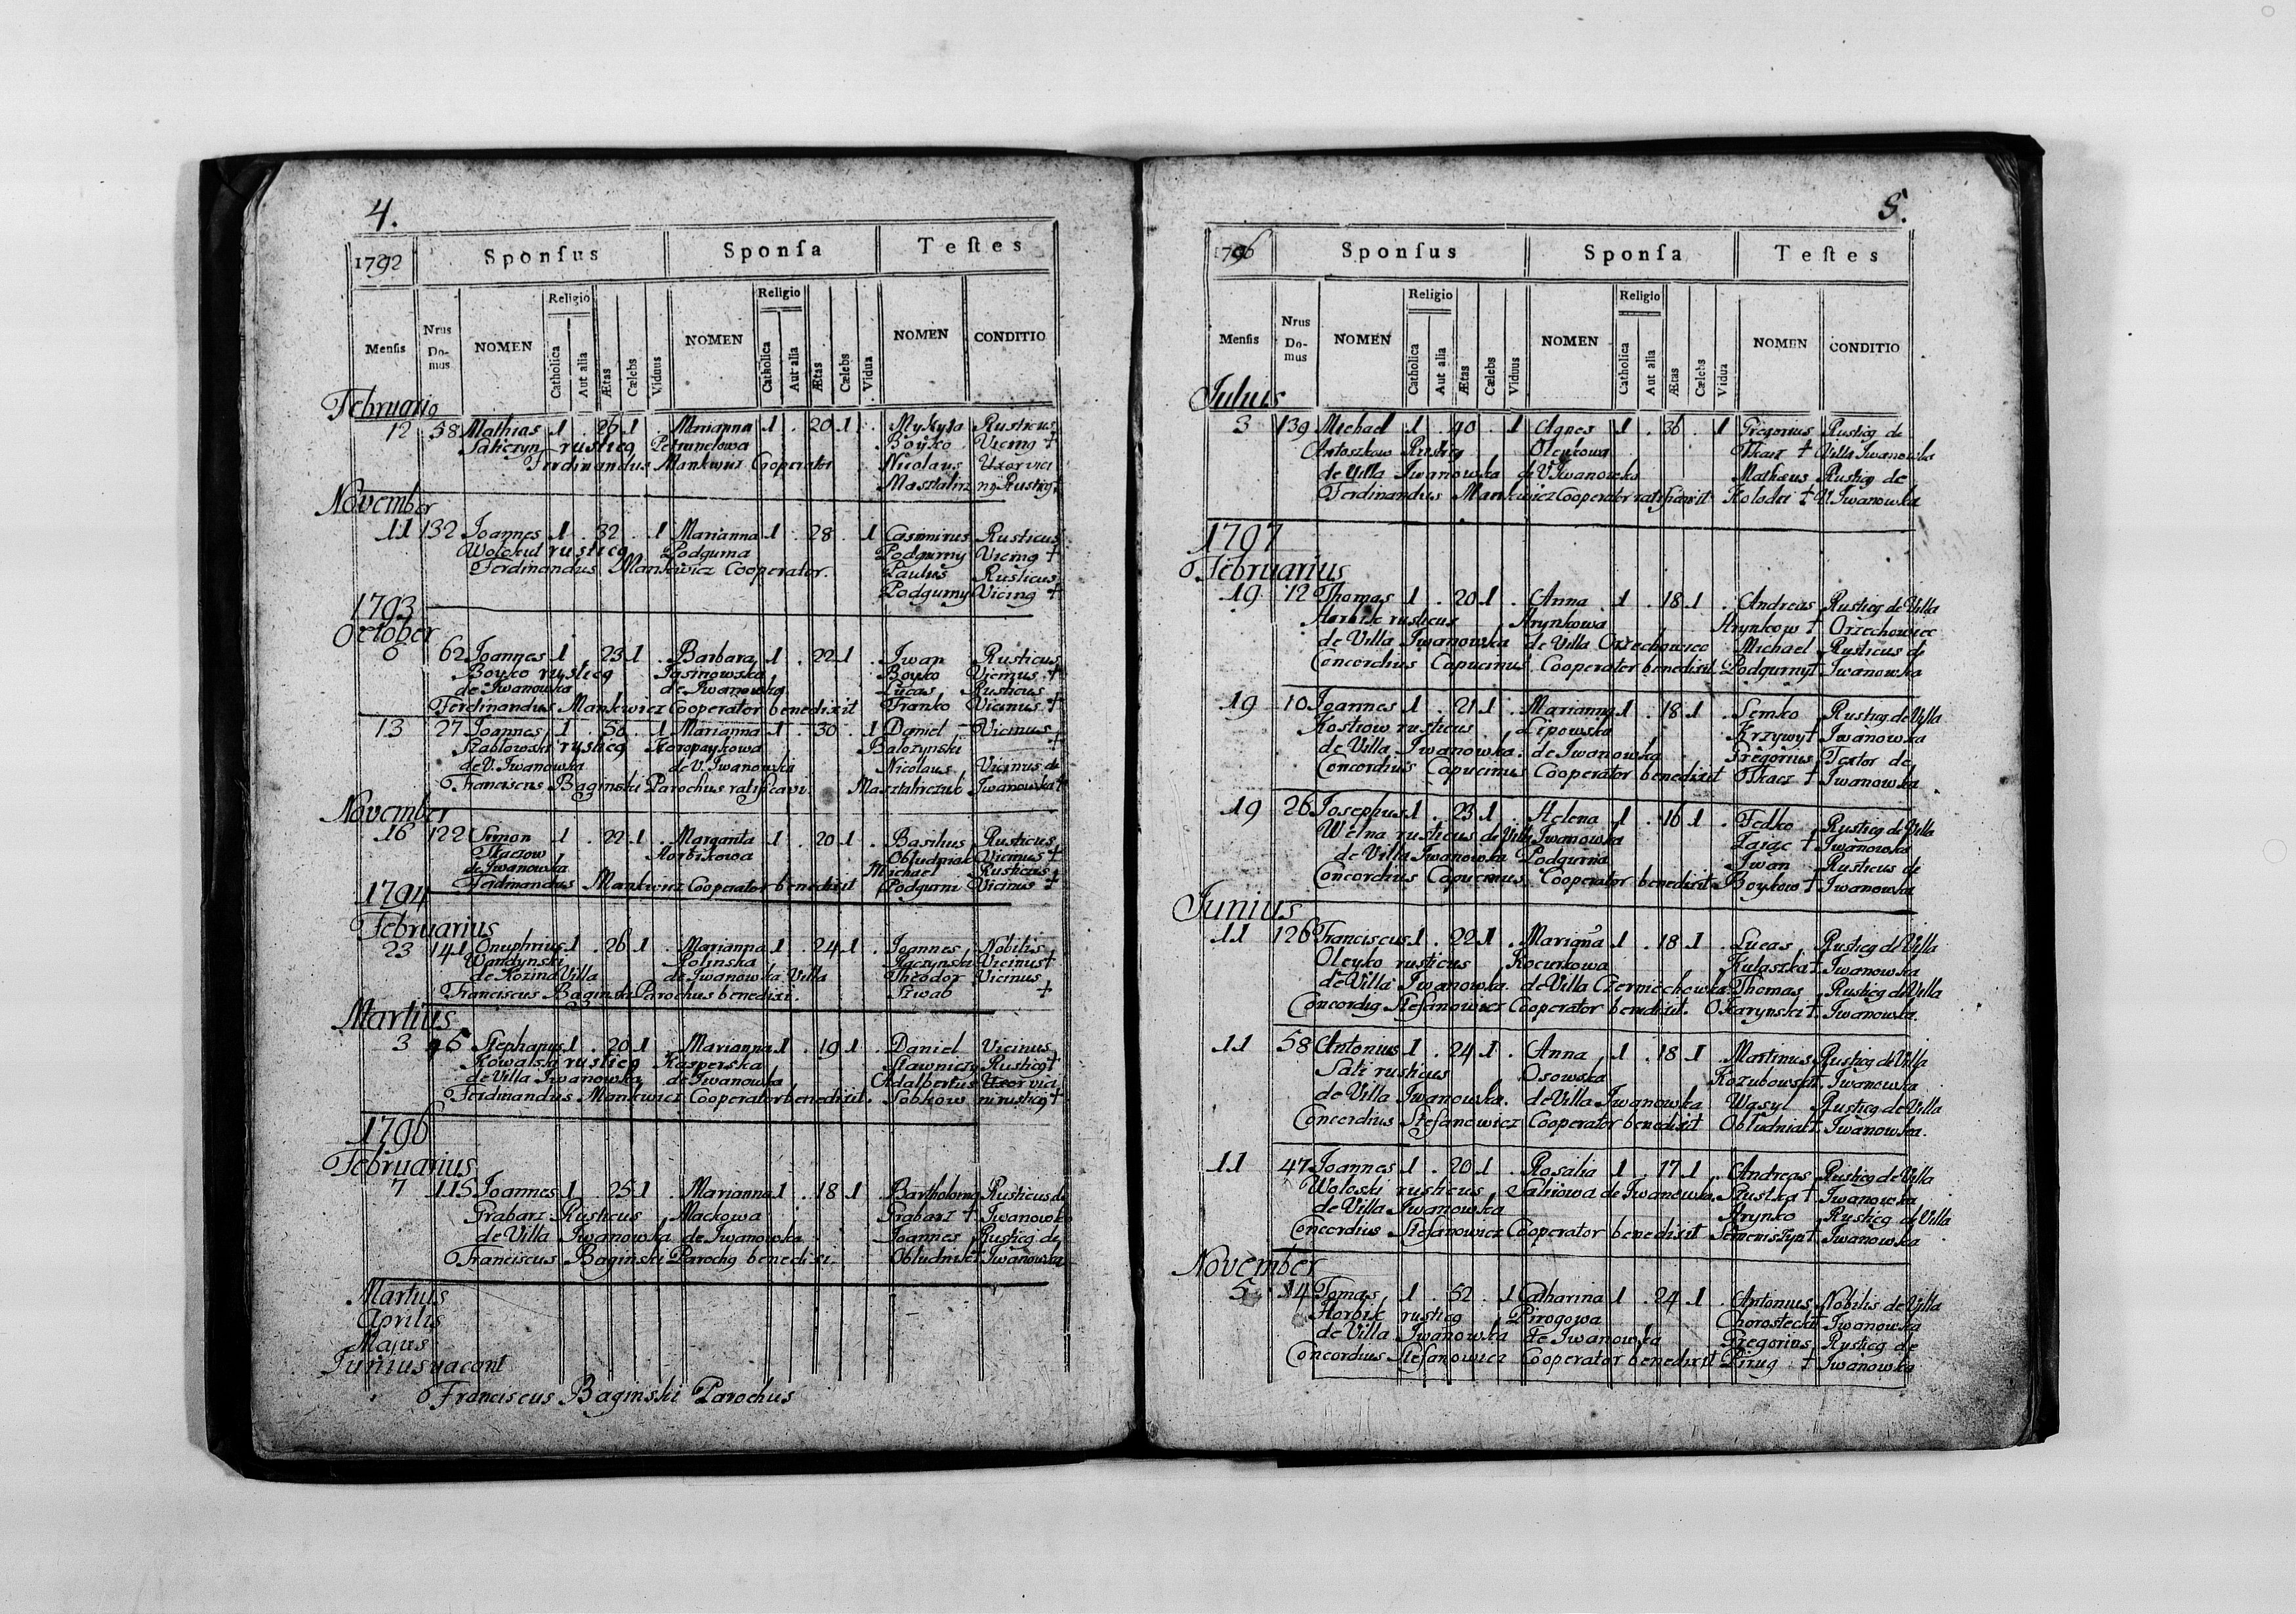 4.
1792 Sponſus Sponſa Teſtes
Menſis Nrus Do-mus NOMEN Religio Catholica Aut alia Ætas Cælebs Viduus NOMEN Religio Catholica Aut alia Ætas Cælebs Vidua NOMEN CONDITIO
Februario
12 58 Mathias 1 . 26 1 . Marianna 1 . 20 1 . Mykyta Rusticus
rusticq Petrunelowa Boyko Vicinq +
Ferdinandus Mankiewicz Cooperator Nicolaus Uxor vici
November
11 132 Joannes 1 . 32 . 1 Marianna 1 . 28 . 1 Casimirus Rusticus
rusticq Podgurna Podgurny Vicinq +
Ferdinandus Mankiewicz Cooperator. Paulus Rusticus
Podgurny Vicinq +
1793
October
6 62 Joannes 1 . 23 1 . Barbara 1 . 22 1 . Iwan Rusticus
Boyko rusticq Jasinowska Boyko Vicinus +
de Iwanowka de Iwanowka Lucas Rusticus
Ferdinandus Mankiewicz Cooperator benedixit Franko Vicinus +
13 27 Joannes 1 . 50 . 1 Marianna 1 . 30 . 1 Daniel Vicinus
Szablowski rusticq Koropaykowa Balozynski +
de V. Iwanowka de V. Iwanowka Nicolaus Vicinus de
Franciscus Baginski Parochus ratificavi. Masztalirczuk Iwanowka +
November
16 122 Simon 1 . 22 1 . Marganta 1 . 20 1 . Basilius Rusticus
Tkaczow Horbikowa Obludniak Vicinus +
de Iwanowka Michael Rusticus
Ferdinandus Mankiewicz Cooperator benedixit Podgurni Vicinus +
1794
Februarius
23 141 Onuphrius 1 . 26 1 . Marianna 1 . 24 1 . Joannes Nobilis
Wandynski Rolinska Raczynski Vicinus +
de Kozina Villa de Iwanowka Villa Theodor Vicinus
Franciscus Baginski Parochus benedixi. Szwab +
Martius
3 45 Stephanus 1 . 20 1 . Marianna 1 . 19 1 . Daniel Vicinus
Kowalski rusticq Kasperska Stawniczy Rusticq +
de Villa Iwanowka de Iwanowka Adalbertus Uxor vici
Ferdinandus Mankiewicz Cooperator benedixit. Sobkow ni rusticq +
1796
Februarius
7 115 Joannes 1 . 25 1 . Marianna 1 . 18 1 . Bartholomq Rusticus de
Grabarz Rusticus Mackowa Grabarz + Iwanowka
de Villa Iwanowka de Iwanowka Joannes Rusticq de
Franciscus Baginski Parochq benedixi. Obludniak + Iwanowka
Martius
Aprilis
Majus
Junius vacant
Franciscus Baginski Parochus
5.
1796 Sponſus Sponſa Teſtes
Menſis Nrus Do-mus NOMEN Religio Catholica Aut alia Ætas Cælebs Viduus NOMEN Religio Catholica Aut alia Ætas Cælebs Vidua NOMEN CONDITIO
Julius
3 139 Michael 1 . 40 . 1 Agnes 1 . 36 . 1 Gregorius Rusticq de
Antoszkow Rusticq Oleykowa Tkacz + Villa Iwanowka
de Villa Iwanowka de V. Iwanowka Mathæus Rusticq de
Ferdinandus Mankiewicz Cooperator ratificavit + V. Iwanowka
1797
Februarius
19 12 Thomas 1 . 20 1 . Anna 1 . 18 1 . Andreas Rusticq de Villa
Horbik rusticus Hrynkowa Hrynkow + Orzechowiec
de Villa Iwanowka de Villa Orzechowiec Michael Rusticus de
Concordius Capucinus Cooperator benedixit. Podgurny + Iwanowka
19 10 Joannes 1 . 21 1 . Marianna 1 . 18 1 . Semko Rusticq de Villa
Kostiow rusticus Lipowska Krzywy + Iwanowka
de Villa Iwanowka. de Iwanowka Gregorius Textor de
Concordius Capucinus Cooperator benedixit Tkacz + Iwanowka
19 26 Josephus 1 . 23 1 . Helena 1 . 16 1 . Fedko Rusticq de Villa
Welna rusticus de Villa Iwanowka Zajac + Iwanowka
de Villa Iwanowka Podgurna Iwan Rusticus de
Concordius Capucinus Cooperator benedixit Boykow + Iwanowka
Junius
11 126 Franciscus 1 . 22 1 . Marianna 1 . 18 1 . Lucas Rusticq de Villa
Oleyko rusticus Kocurkowa Kulaszka + Iwanowka
de Villa Iwanowka. de Villa Czerniechowka. Thomas Rusticq de Villa
Concordiq Stefanowicz Cooperator benedixit. Okarynski + Iwanowka.
11 58 Antonius 1 . 24 1 . Anna 1 . 18 1 . Martinus Rusticq de Villa
rusticus Osowska Kozubowski + Iwanowka
de Villa Iwanowka. de Villa Iwanowka Wasyl Rusticq de Villa
Concordius Stefanowicz Cooperator benedixit Obludniak + Iwanowka.
11 47 Joannes 1 . 20 1 . Rosalia 1 . 17 1 . Andreas Rusticq de Villa
Woloski rusticus de Iwanowka. + Iwanowka
de Villa Iwanowka Hrynko Rusticq de Villa
Concordius Stefanowicz Cooperator benedixit + Iwanowka
November
5 14 Tomas 1 . 52 . 1 Catharina 1 . 24 1 . Antonius Nobilis de Villa
Horbik rusticq Pirogowa Chorostecki + Iwanowka
de Villa Iwanowka de Iwanowka Gregorius Rusticq de
Concordius Stefanowicz Cooperator benedixit Pirug + Iwanowka